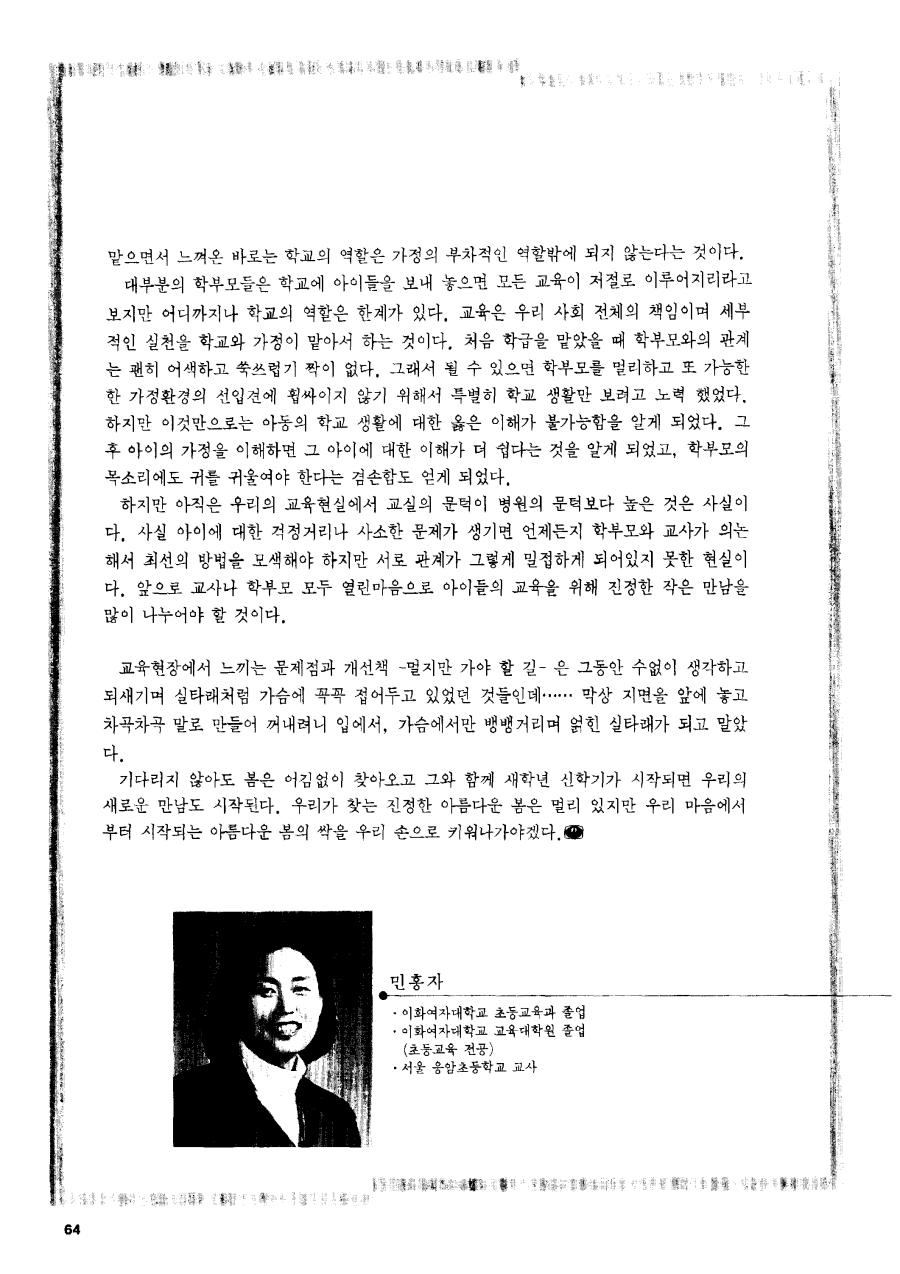 맡으면서 느껴온 바로는 학교의 역할은 가정의 부차적인 역할밖에 되지 않는다는 것이다.
대부분의 학부모들은 학교에 아이들을 보내 놓으면 모든 교육이 저절로 이루어지리라고
보지만 어디까지나 학교의 역할은 한계가 있다. 교육은 우리 사회 전체의 책임이며 세부
적인 실천을 학교와 가정이 맡아서 하는 것이다. 처음 학급을 맡았을 때 학부모와의 관계
는 괜히 어색하고 쑥쓰럽기 짝이 없다. 그래서 될 수 있으면 학부모를 멀리하고 또 가능한
한 가정환경의 선입견에 휩싸이지 않기 위해서 특별히 학교 생활만 보려고 노력 했었다.
하지만 이것만으로는 아동의 학교 생활에 대한 옳은 이해가 불가능함을 알게 되었다. 그
후 아이의 가정을 이해하면 그 아이에 대한 이해가 더 쉽다는 것을 알게 되었고, 학부모의
목소리에도 귀를 귀울여야 한다는 겸손함도 얻게 되었다.
하지만 아직은 우리의 교육현실에서 교실의 문턱이 병원의 문턱보다 높은 것은 사실이
다. 사실 아이에 대한 걱정거리나 사소한 문제가 생기면 언제든지 학부모와 교사가 의논
해서 최선의 방법을 모색해야 하지만 서로 관계가 그렇게 밀접하게 되어있지 못한 현실이
다. 앞으로 교사나 학부모 모두 열린마음으로 아이들의 교육을 위해 진정한 작은 만남을
많이 나누어야 할 것이다.
교육현장에서 느끼는 문제점과 개선책 -멀지만 가야 할 길- 은 그동안 수없이 생각하고
되새기며 실타래처럼 가슴에 꼭꼭 접어두고 있었던 것들인데…… 막상 지면을 앞에 놓고
차곡차곡 말로 만들어 꺼내려니 입에서, 가슴에서만 뱅뱅거리며 얽힌 실타래가 되고 말았
다.
기다리지 않아도 봄은 어김없이 찾아오고 그와 함께 새학년 신학기가 시작되면 우리의
새로운 만남도 시작된다. 우리가 찾는 진정한 아름다운 봄은 멀리 있지만 우리 마음에서
부터 시작되는 아름다운 봄의 싹을 우리 손으로 키워나가야겠다.
민홍자
· 이화여자대학교 초등교육과 졸업
· 이화여자대학교 교육대학원 졸업
(초등교육 전공)
· 서울 응암초등학교 교사
64